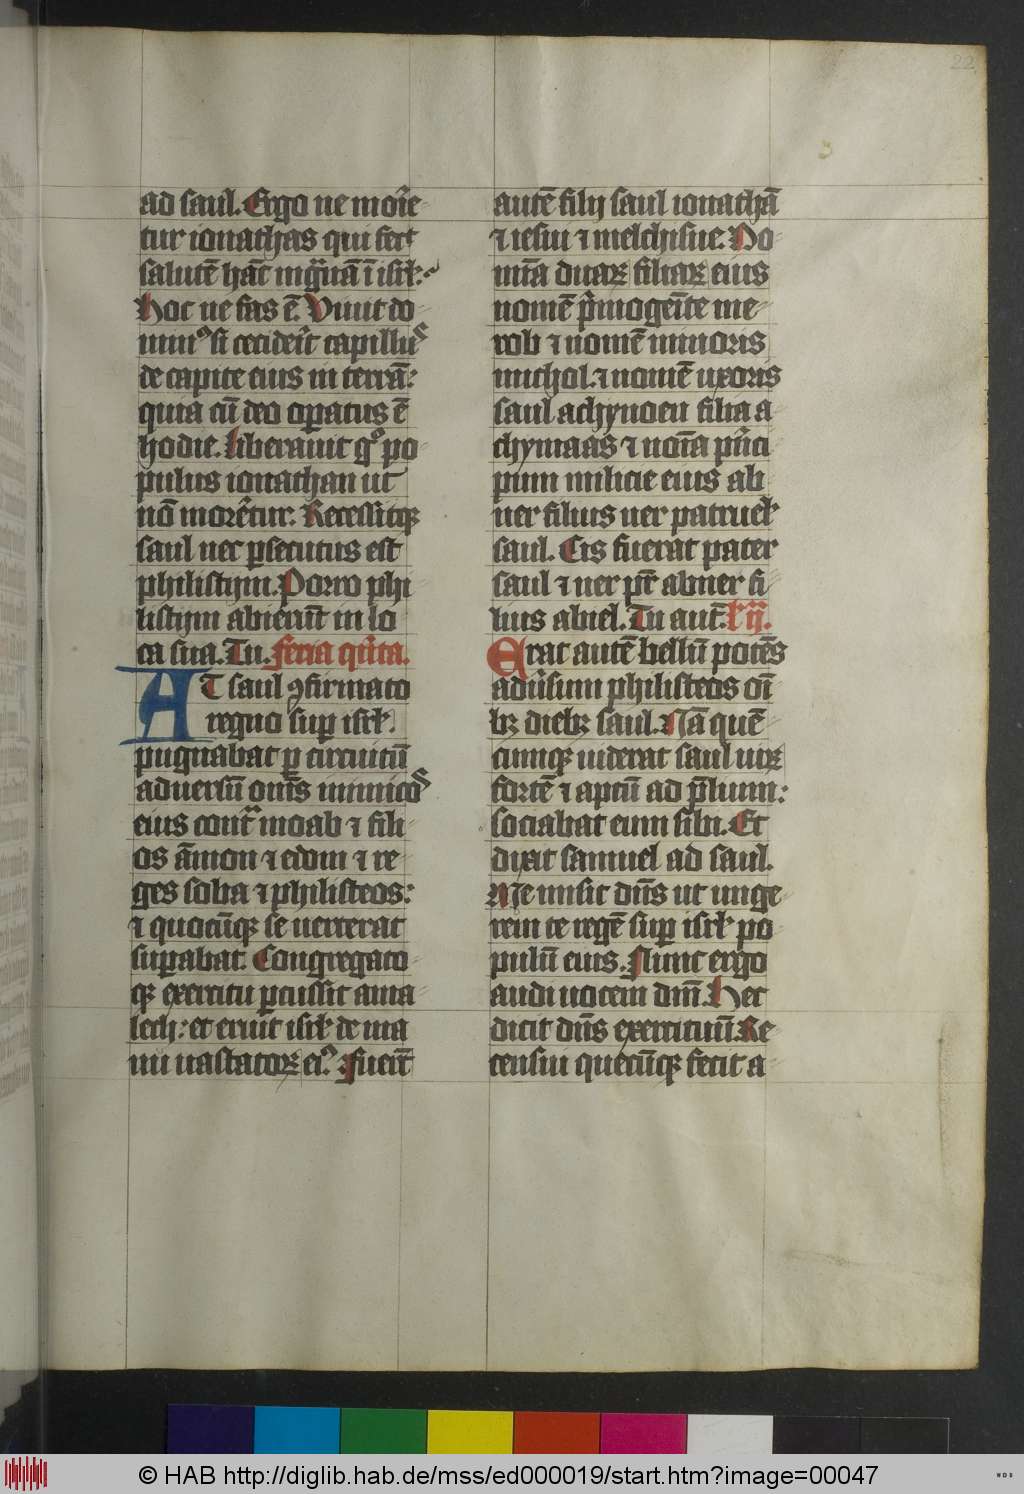 22
ad saul. Ergo ne morie
tur ionathas qui fecit
salutē hāc mͣgnā ī isrł:
hoc ne fas ē. Viuit do
minꝰ si cecideꝛͥt capillꝰ
de capite eius in terrā:
quia cū deo oꝑatus ē
hodie. Liberauit gͦ po
pulus ionathan ut
nō moreꝛͥtur. Recessitqꝫ
saul nec ꝑsecutus est
philistijm. Porro phi
listijm abierūt in lo
ca sua. Tu. feria qͥnta.
AT saul ꝯfirmato
regno suꝑ isrł.
pugnabat ꝑ circuitū
aduersū om̄s inimicos
eius contͣ moab ⁊ fili
os āmon ⁊ edom ⁊ re
ges soba ⁊ philisteos:
⁊ quocūqꝫ se uerterat
suꝑabat. Congregato
qꝫ exercitu ꝑcussit ama
lech: et eruit isrł de ma
nu uastatoꝝ eiꝰ. Fuerūt
autē filij saul ionathā
⁊ iesui ⁊ melchisue. No
mīa duaꝝ filiaꝝ eius
nomē pͥmogenīte me
rob ⁊ nomē minoris
michol. ⁊ nomē uxoris
saul achynoen filia a
chymaas ⁊ noīa pͥnci
pum milicie eius ab
ner filius ner patruel̕
saul. Cis fuerat pater
saul ⁊ ner pr̄ abner fi
lius abiel. Tu aut̄.
Erat autē bellū potēs
adūsum philisteos oī
bꝫ diebꝫ saul. Nā quē
cumqꝫ uiderat saul uiꝝ
fortē ⁊ aptū ad p̄lium:
sociabat eum sibi. Et
dixit samuel ad saul.
Me misit dn̄s ut unge
rem te regē suꝑ isrł po
pulū eius. Nunc ergo
audi uocem dnī. Hec
dicit dn̄s exercituū. Re
censui quecūqꝫ fecit a
© HAB http://diglib.hab.de/mss/ed000019/start.htm?image=00047